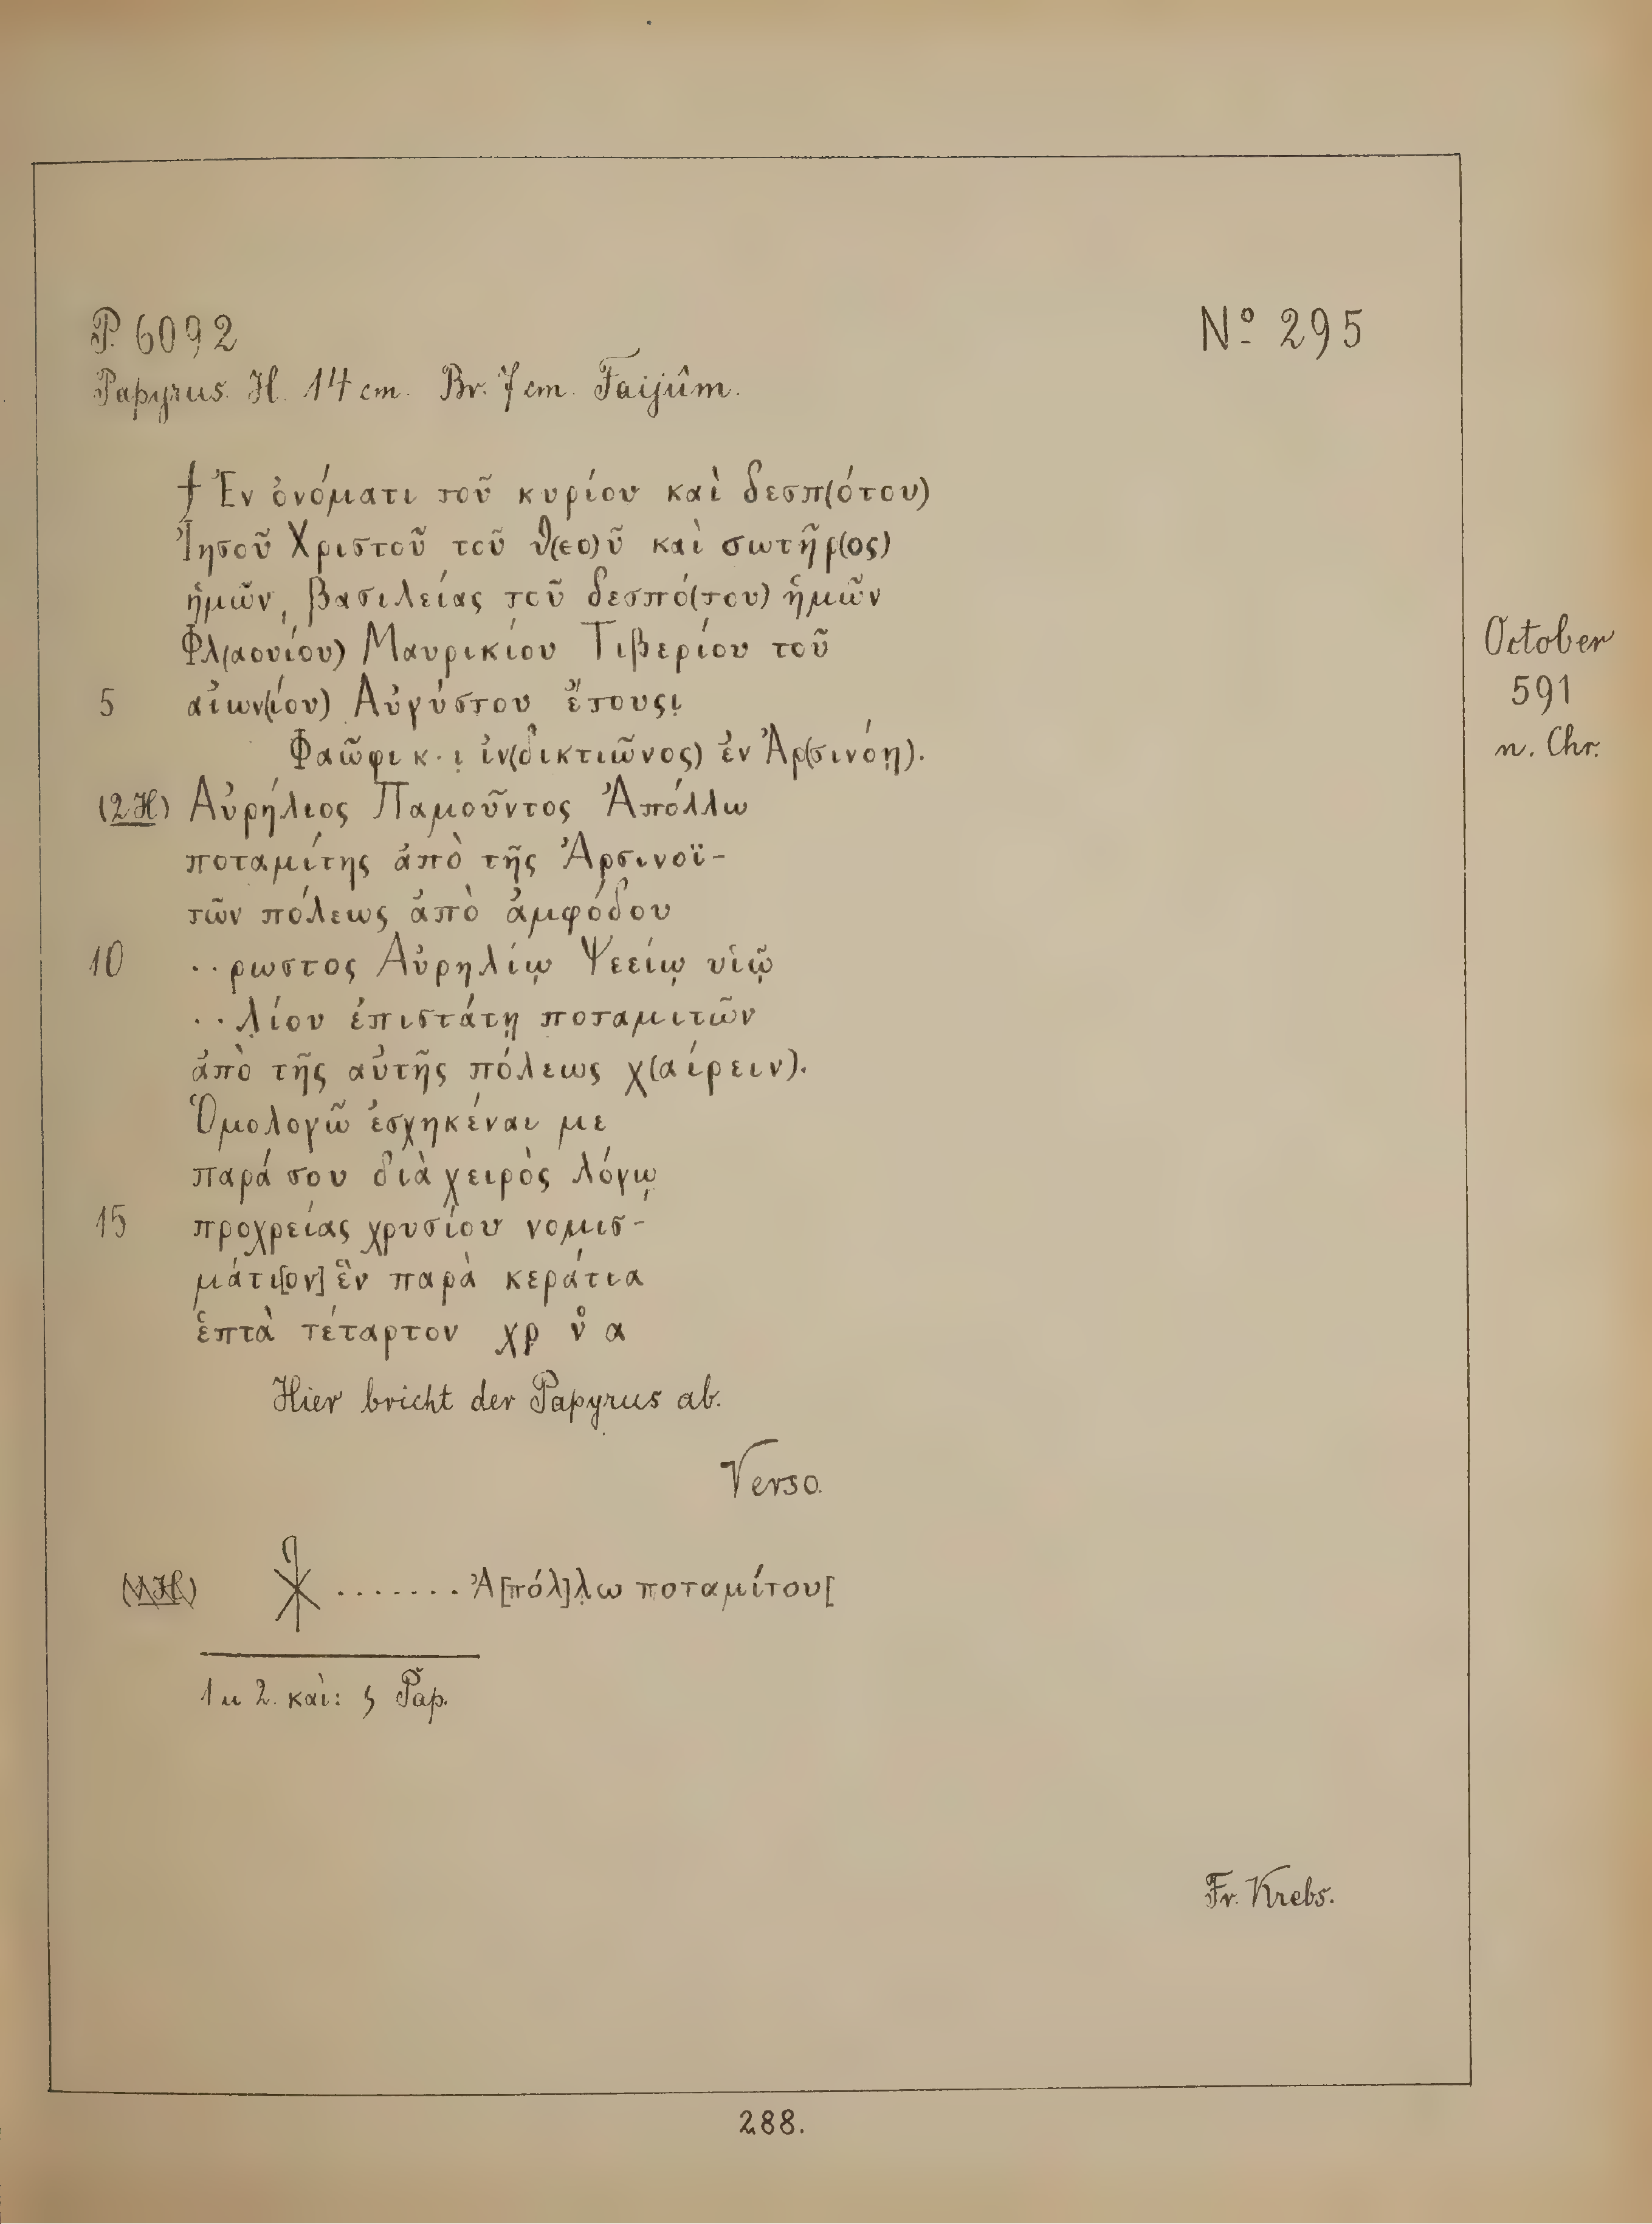 P. 6092
Nº 295
Papyrus. H. 14 cm. Br. 7 cm. Faijûm.
† Ἐν ὀνόματι τοῦ κυρίου καὶ δεσπ(ότου)
Ἰησοῦ Χριστοῦ τοῦ θ(εο)ῦ καὶ σωτῆρ(ος)
ἡμῶν, βασιλείας τοῦ δεσπό(του) ἡμῶν
Φλ(αουίου) Μαυρικίου Τιβερίου τοῦ
5 αἰων(ίου) Αὐγύστου ἔτους ι̣
Φαῶφι κ· ι̣ ἰν(δικτιῶνος) ἐν Ἀρ(σινόῃ).
(2 H) Αὐρήλιος Παμοῦντος Ἀπόλλω
ποταμίτης ἀπὸ τῆς Ἀρσινοϊ-
τῶν πόλεως ἀπὸ ἀμφόδου
10 ··ρωστος Αὐρηλίῳ Ψεείῳ υἱῷ
··λ̣ίου ἐπιστάτῃ ποταμιτῶν
ἀπὸ τῆς αὐτῆς πόλεως χ(αίρειν).
Ὁμολογῶ ἐσχηκέναι με
παρά σου διὰ χειρὸς λόγῳ
15 προχρείας χρυσίου νομισ-
μάτι[ον] ἓν παρὰ κεράτια
ἑπτὰ τέταρτον χρ ν̊ α
Hier bricht der Papyrus ab.
Verso.
⳩ ······· Ἀ[πόλ]λ̣ω ποταμίτου[
1 u 2. καὶ: ϛ Pap.
October
591
n. Chr.
Fr. Krebs.
288.